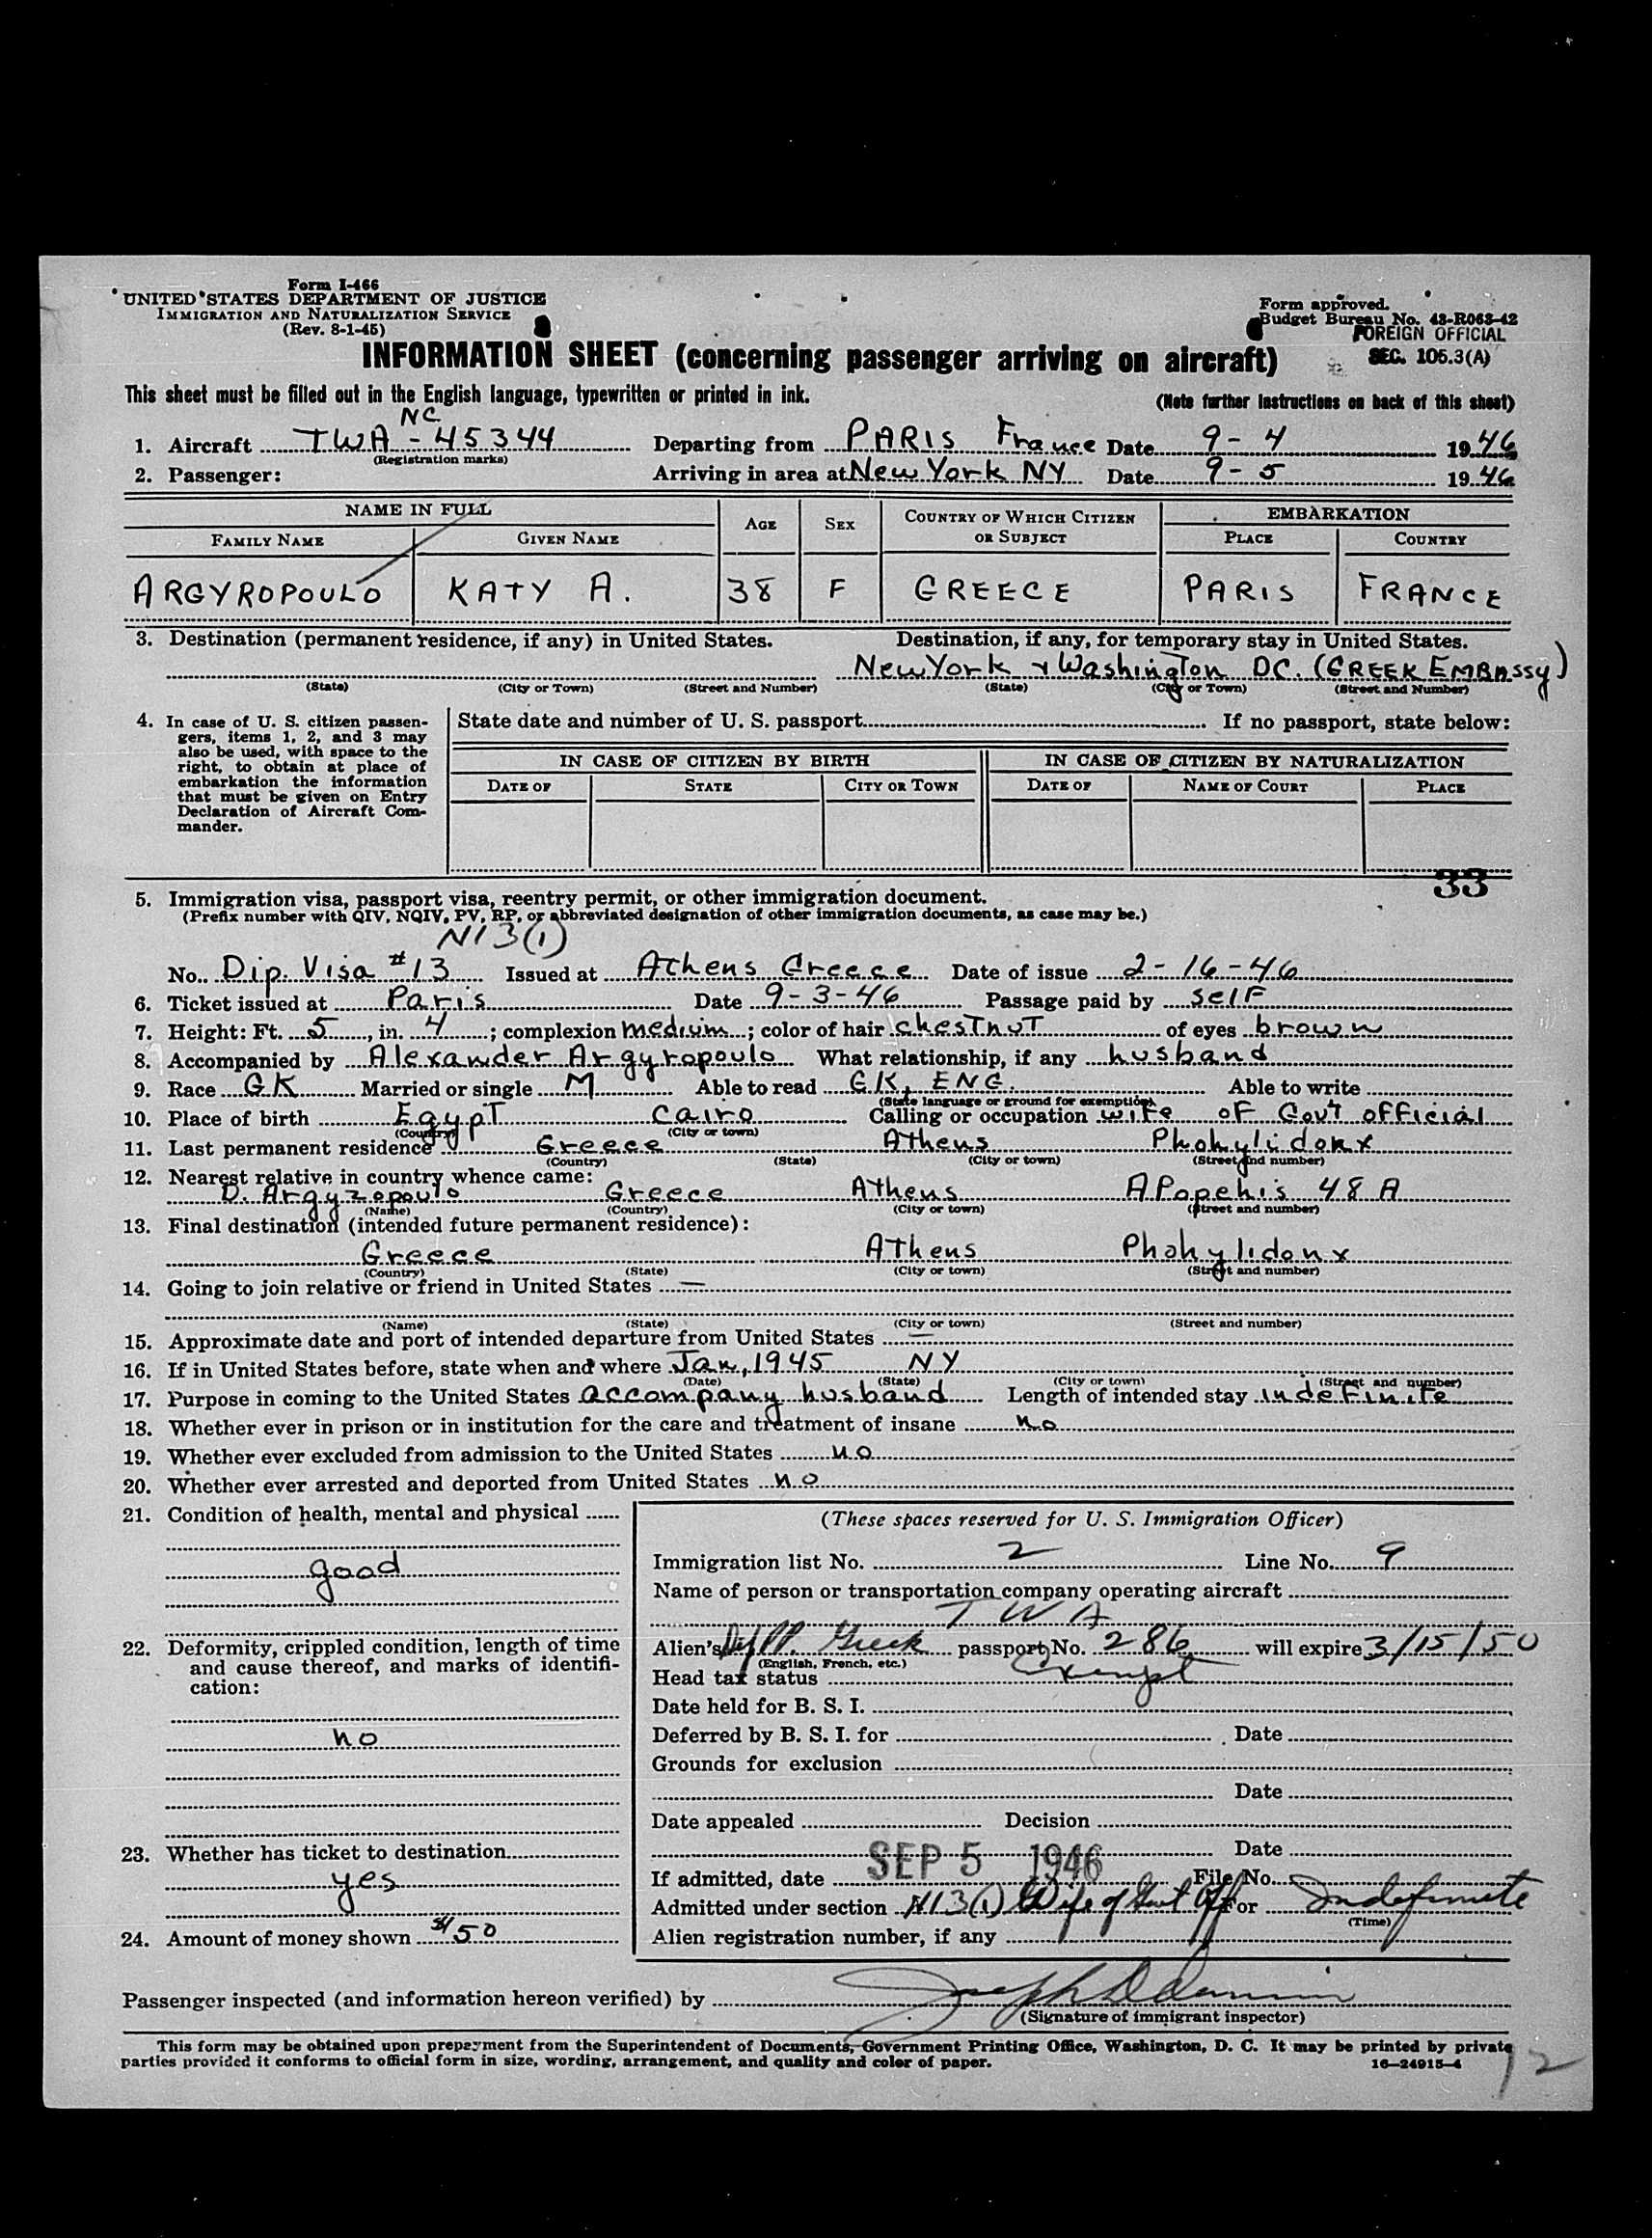 Form I-466
UNITED STATES DEPARTMENT OF JUSTICE
IMMIGRATION AND NATURALIZATION SERVICE
(Rev. 8-1-45)
Form approved.
Budget Bureau No. 43-R063-42
FOREIGN OFFICIAL
SEC. 105.3(A)
INFORMATION SHEET (concerning passenger arriving on aircraft)
This sheet must be filled out in the English language, typewritten or printed in ink.
(Note further instructions on back of this sheet)
NC
1. Aircraft TWA - 45344 Departing from PARIS France Date 9-4 1946
(Registration marks)
2. Passenger: Arriving in area at New York NY Date 9-5 1946
NAME IN FULL AGE SEX COUNTRY OF WHICH CITIZEN OR SUBJECT EMBARKATION
FAMILY NAME GIVEN NAME PLACE COUNTRY
ARGYROPOULO KATY A. 38 F GREECE PARIS FRANCE
3. Destination (permanent residence, if any) in United States. Destination, if any, for temporary stay in United States.
New York & Washington DC. (GREEK EMBASSY)
(State) (City or Town) (Street and Number) (State) (City or Town) (Street and Number)
4. In case of U. S. citizen passengers, items 1, 2, and 3 may also be used, with space to the right, to obtain at place of embarkation the information that must be given on Entry Declaration of Aircraft Commander.
State date and number of U. S. passport If no passport, state below:
IN CASE OF CITIZEN BY BIRTH IN CASE OF CITIZEN BY NATURALIZATION
DATE OF STATE CITY OR TOWN DATE OF NAME OF COURT PLACE
33
5. Immigration visa, passport visa, reentry permit, or other immigration document.
(Prefix number with QIV, NQIV, PV, RP, or abbreviated designation of other immigration documents, as case may be.)
N13(1)
No. Dip. Visa #13 Issued at Athens Greece Date of issue 2-16-46
6. Ticket issued at Paris Date 9-3-46 Passage paid by self
7. Height: Ft. 5, in. 4; complexion medium; color of hair chestnut of eyes brown
8. Accompanied by Alexander Argyropoulo What relationship, if any husband
9. Race GK Married or single M Able to read GK, ENG. Able to write
(State language or ground for exemption)
10. Place of birth Egypt Cairo Calling or occupation wife of Gov't official
(Country) (City or town)
11. Last permanent residence Greece Athens Phohylidonx
(Country) (State) (City or town) (Street and number)
12. Nearest relative in country whence came:
D. Argyzopoulo Greece Athens APopehis 48 A
(Name) (Country) (City or town) (Street and number)
13. Final destination (intended future permanent residence):
Greece Athens Phohylidonx
(Country) (State) (City or town) (Street and number)
14. Going to join relative or friend in United States —
(Name) (State) (City or town) (Street and number)
15. Approximate date and port of intended departure from United States —
16. If in United States before, state when and where Jan, 1945 NY
(Date) (State) (City or town) (Street and number)
17. Purpose in coming to the United States accompany husband Length of intended stay indefinite
18. Whether ever in prison or in institution for the care and treatment of insane no
19. Whether ever excluded from admission to the United States no
20. Whether ever arrested and deported from United States no
21. Condition of health, mental and physical
good
22. Deformity, crippled condition, length of time and cause thereof, and marks of identification:
no
23. Whether has ticket to destination
yes
24. Amount of money shown $50
(These spaces reserved for U. S. Immigration Officer)
Immigration list No. 2 Line No. 9
Name of person or transportation company operating aircraft
TWA
Alien's Greek passport No. 286 will expire 3/15/50
(English, French, etc.)
Head tax status Exempt
Date held for B. S. I.
Deferred by B. S. I. for Date
Grounds for exclusion
Date
Date appealed Decision
Date
If admitted, date SEP 5 1946 File No.
Admitted under section N13(1) Wife of Govt Off For Indefinite
(Time)
Alien registration number, if any
Passenger inspected (and information hereon verified) by
(Signature of immigrant inspector)
This form may be obtained upon prepayment from the Superintendent of Documents, Government Printing Office, Washington, D. C. It may be printed by private
parties provided it conforms to official form in size, wording, arrangement, and quality and color of paper. 16—24915-4
12